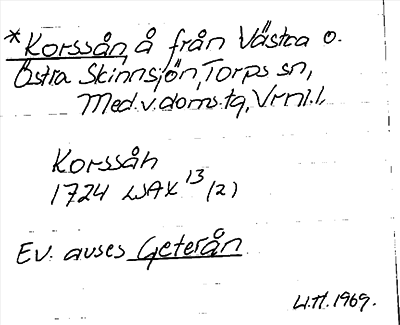 *Korssån, å från Västra o.
Östra Skinnsjön, Torps sn,
Med.v.doms.tg, Vrnl.l.
Korssåh
1724 LSAK 13 (2)
Ev. avses Geterån
L.H. 1969.